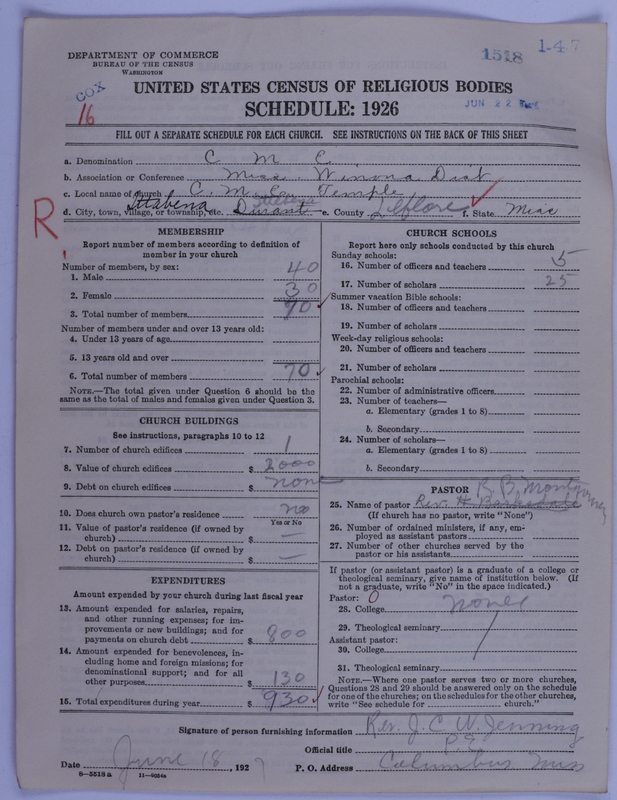 1518 1-47
DEPARTMENT OF COMMERCE
BUREAU OF THE CENSUS
WASHINGTON
COX
16
UNITED STATES CENSUS OF RELIGIOUS BODIES
JUN 22
SCHEDULE: 1926
FILL OUT A SEPARATE SCHEDULE FOR EACH CHURCH. SEE INSTRUCTIONS ON THE BACK OF THIS SHEET
a. Denomination C M E
b. Association or Conference Miss. Winona Dist
c. Local name of church C. M. E. Temple
Ittabena
d. City, town, village, or township, etc. Durant e. County Leflore f. State Miss
R
MEMBERSHIP
Report number of members according to definition of
member in your church
Number of members, by sex:
1. Male 40
2. Female 30
3. Total number of members 70
Number of members under and over 13 years old:
4. Under 13 years of age
5. 13 years old and over
6. Total number of members 70
NOTE.—The total given under Question 6 should be the
same as the total of males and females given under Question 3.
CHURCH BUILDINGS
See instructions, paragraphs 10 to 12
7. Number of church edifices 1
8. Value of church edifices $ 2000
9. Debt on church edifices $ none
10. Does church own pastor's residence? no
Yes or No
11. Value of pastor's residence (if owned by
church) $ —
12. Debt on pastor's residence (if owned by
church) $ —
EXPENDITURES
Amount expended by your church during last fiscal year
13. Amount expended for salaries, repairs,
and other running expenses; for im-
provements or new buildings; and for
payments on church debt $ 800
14. Amount expended for benevolences, in-
cluding home and foreign missions; for
denominational support; and for all
other purposes $ 130
15. Total expenditures during year $ 930
CHURCH SCHOOLS
Report here only schools conducted by this church
Sunday schools:
16. Number of officers and teachers 5
17. Number of scholars 25
Summer vacation Bible schools:
18. Number of officers and teachers
19. Number of scholars
Week-day religious schools:
20. Number of officers and teachers
21. Number of scholars
Parochial schools:
22. Number of administrative officers
23. Number of teachers—
a. Elementary (grades 1 to 8)
b. Secondary
24. Number of scholars—
a. Elementary (grades 1 to 8)
b. Secondary
PASTOR R. B. Montgomery
25. Name of pastor Rev. H Barksdale
(If church has no pastor, write "None")
26. Number of ordained ministers, if any, em-
ployed as assistant pastors
27. Number of other churches served by the
pastor or his assistants
If pastor (or assistant pastor) is a graduate of a college or
theological seminary, give name of institution below. (If
not a graduate, write "No" in the space indicated.)
Pastor: 0
28. College
29. Theological seminary
Assistant pastor:
30. College
31. Theological seminary
NOTE.—Where one pastor serves two or more churches,
Questions 28 and 29 should be answered only on the schedule
for one of the churches; on the schedules for the other churches,
write "See schedule for church."
Signature of person furnishing information Rev. J. C. W. Jenning
Official title P. E.
Date June 18, 1927 P. O. Address Columbus Miss
8-5518 a 11-9264a